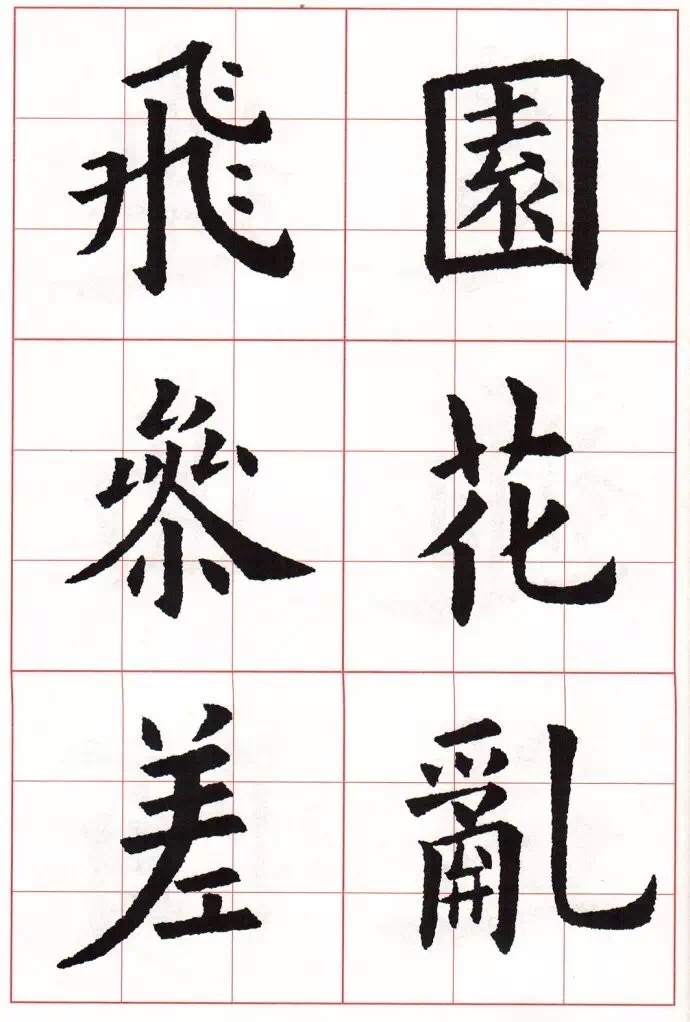 園花亂
飛參差